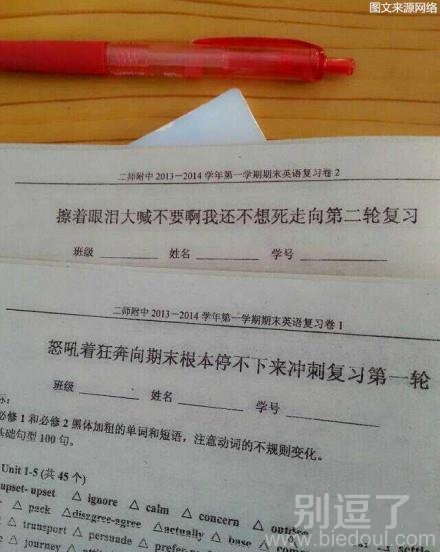 图文来源网络
二师附中 2013－2014 学年第一学期期末英语复习卷 2
擦着眼泪大喊不要啊我还不想死走向第二轮复习
班级 姓名 学号
二师附中 2013－2014 学年第一学期期末英语复习卷 1
怒吼着狂奔向期末根本停不下来冲刺复习第一轮
班级 姓名 学号
标:
必修 1 和必修 2 黑体加粗的单词和短语，注意动词的不规则变化。
基础句型 100 句。
Unit 1-5 (共 45 个)
upset- upset △ ignore △ calm △ concern △ outdoor
△ pack △disagree-agree △actually △ base
△ transport △ persuade △
journey △
别逗了
www.biedoul.com